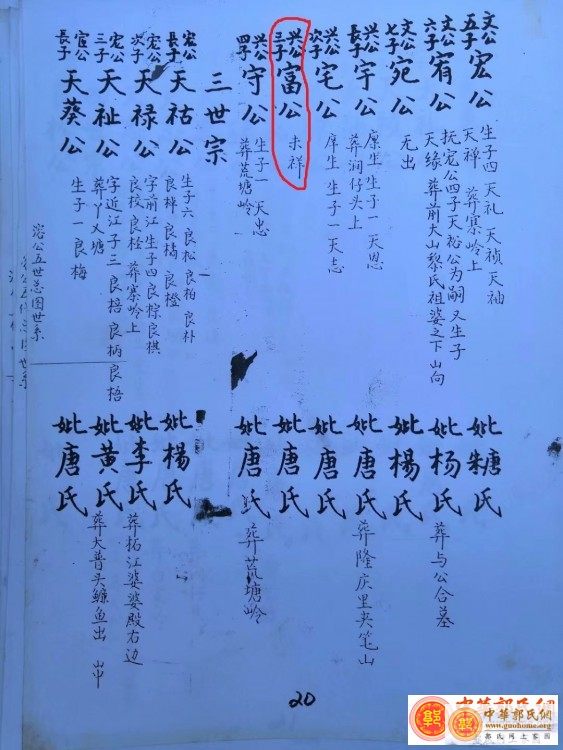 文公五子 宏公 生子四 天礼 天祯 天袖
天禅 葬寨岭上
妣糖氏
文公六子 宥公 抚宏公四子天裕公为嗣 又生子
天缘 葬前大山黎氏祖婆之下山向
妣杨氏 葬与公合墓
文公七子 宛公 无出
妣楊氏
兴公長子 宇公 庠生 生子一 天恩
葬润仔头上
妣唐氏 葬隆庆里夹笔山
兴公次子 宅公 庠生 生子一 天志
妣唐氏
兴公三子 富公 未祥
妣唐氏
兴公四子 守公 生子一 天忠
葬荒塘岭
妣唐氏 葬荒塘岭
三世宗
宏公長子 天祜公 生子六 良松 良柏 良朴
良样 良橘 良橙
妣楊氏
宏公次子 天禄公 字前江 生子四 良棕 良棋
良校 良枉 葬寨岭上
妣李氏 葬拓江婆婆殿右边
宏公三子 天祉公 字近江 子三 良梧 良柄 良梧
葬丫乂塘
妣黄氏 葬大普头鳙鱼出
宦公長子 天葵公 生子一 良梅
妣唐氏
宓公五世总图世系
20
中華郭氏網
www.guohome.org
郭氏网上家园